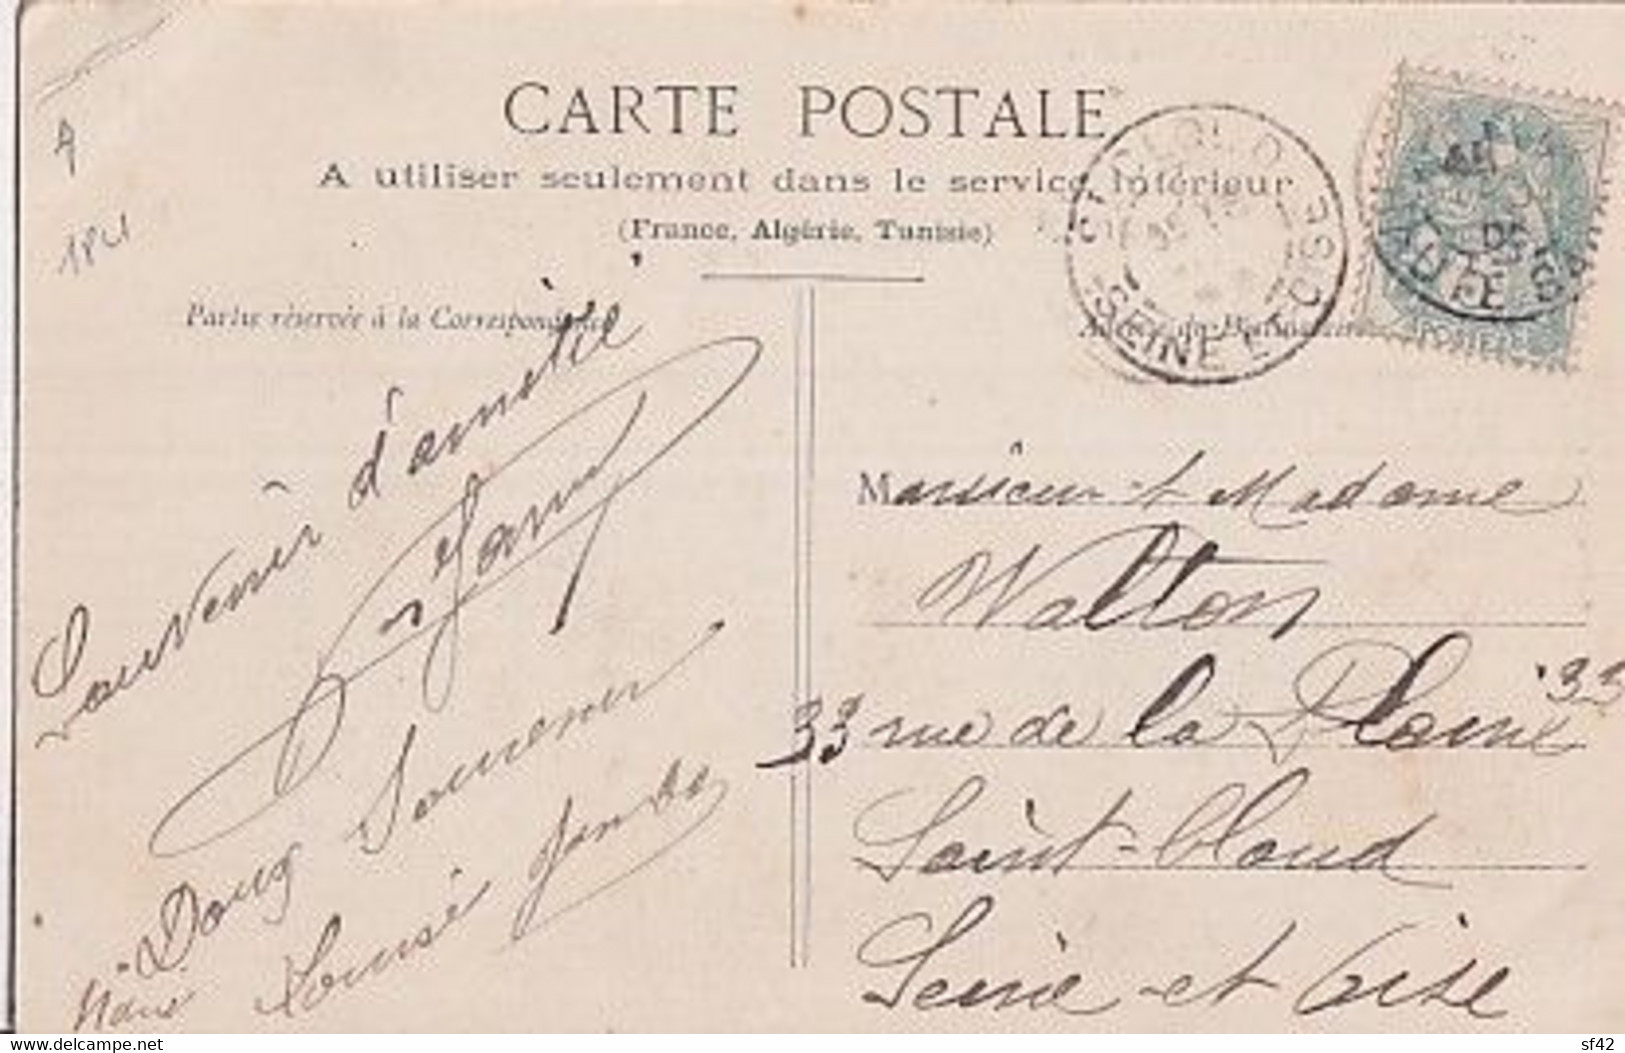 CARTE POSTALE
A utiliser seulement dans le service intérieur
(France, Algérie, Tunisie)
Partie réservée à la Correspondance
Adresse du Destinataire
A
Souvenir d'amitié
Doux Souvenir
Marie Louise
Monsieur et Madame
Walton
33 rue de la Plaine 33
Saint-Cloud
Seine-et Oise
ST CLOUD
SEINE ET OISE
POSTES
www.delcampe.net
sf42